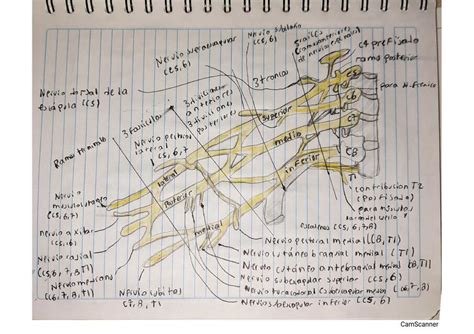 Nervio subclavio
(C5,6)
Nervio supraescapular
(C5,6)
C4 prefijado
ramo posterior
Nervio dorsal de la
escápula (C5)
3 troncos
3 divisiones
anteriores
3 divisiones
posteriores
3 fascículos
Nervio pectoral
lateral
(C5,6,7)
Ramo terminal
superior
medio
inferior
lateral
Posterior
medial
C5
C6
C7
C8
T1
para N. frénico
contribución T2
(Postfijado)
para músculos
escalenos (C5,6,7,8)
Nervio
musculocutáneo
(C5,6,7)
nervio axilar
(C5,6)
Nervio radial
(C5,6,7,8,T1)
Nervio mediano
(C6,7,8,T1)
Nervio cubital
C7,8,T1
Nervio pectoral medial (C8,T1)
Nervio cutáneo braquial medial (T1)
Nervio cutáneo antebraquial medial (C8,T1)
Nervio subescapular superior (C5,6)
Nervio toracodorsal (subescapular medio) (C6,7,8)
Nervio subescapular inferior (C5,6)
CamScanner